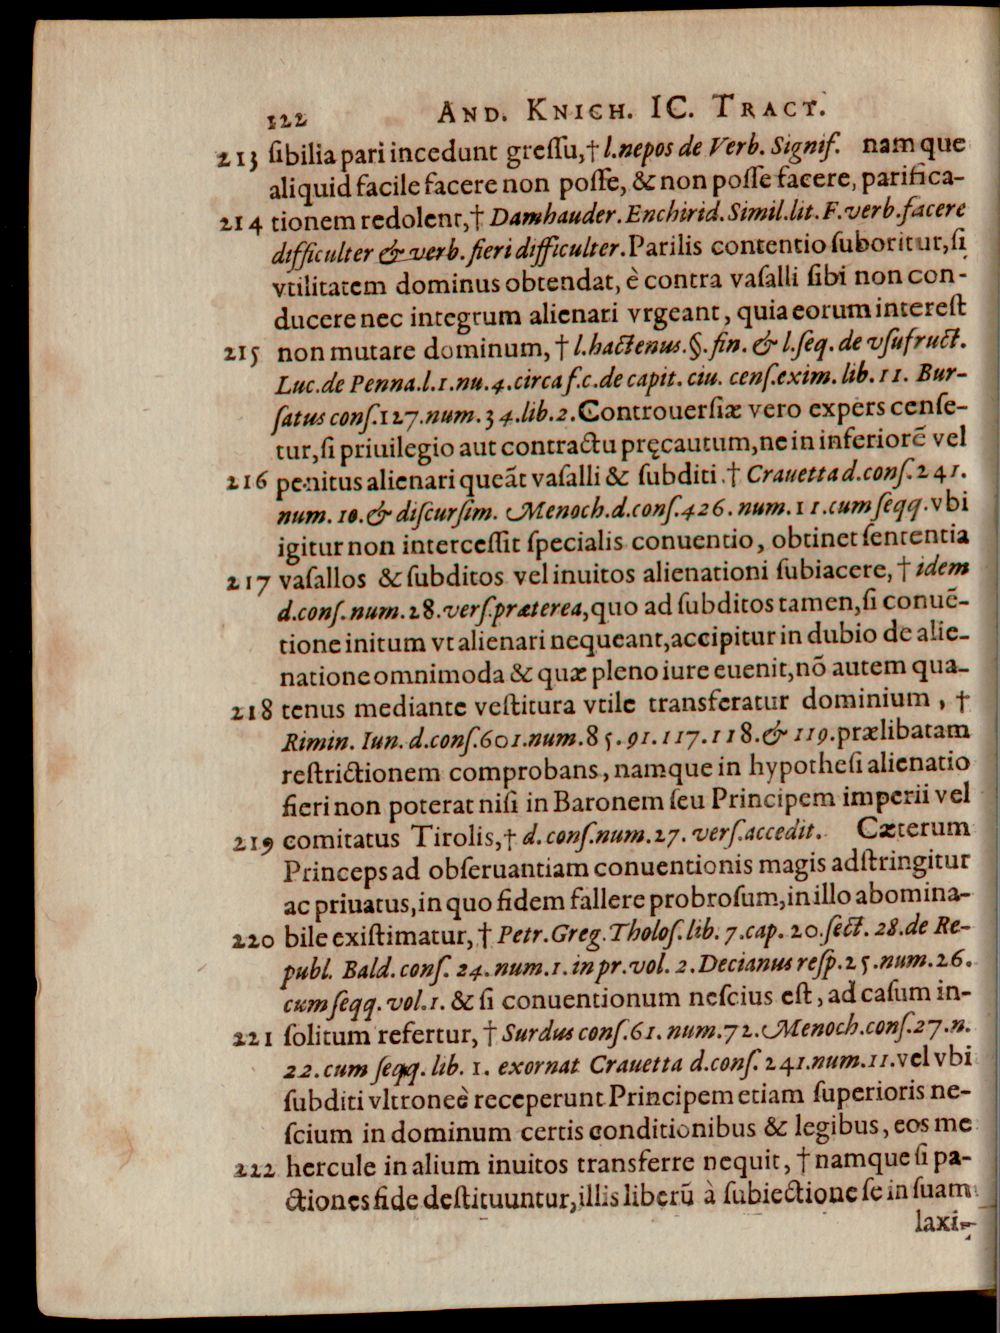 322 AND. KNICH. IC. TRACT.
213 ſibilia pari incedunt greſſu,† l.nepos de Verb. Signif. namque
aliquid facile facere non poſſe, & non poſſe facere, parifica-
214 tionem redolent,† Damhauder. Enchirid. Simil.lit. F.verb.facere
difficulter & verb. fieri difficulter. Parilis contentio ſuboritur, ſi
vtilitatem dominus obtendat, è contra vaſalli ſibi non con-
ducere nec integrum alienari vrgeant, quia eorum intereſt
215 non mutare dominum, † l.hactenus.§.fin. & l.ſeq. de vſufruct.
Luc.de Penna.l.1.nu.4.circa f.c.de capit. ciu. cenſ.exim. lib.11. Bur-
ſatus conſ.127.num.34.lib.2. Controuerſiæ vero expers cenſe-
tur, ſi priuilegio aut contractu pręcautum, ne in inferiorē vel
216 penitus alienari queāt vaſalli & ſubditi.† Crauetta d.conſ.241.
num. 10. & diſcurſim. Menoch.d.conſ.426. num.11.cum ſeqq. vbi
igitur non interceſſit ſpecialis conuentio, obtinet ſententia
217 vaſallos & ſubditos vel inuitos alienationi ſubiacere, † idem
d.conſ.num.28.verſ.præterea, quo ad ſubditos tamen, ſi conuē-
tione initum vt alienari nequeant, accipitur in dubio de alie-
natione omnimoda & quæ pleno iure euenit, nō autem qua-
218 tenus mediante veſtitura vtile transferatur dominium, †
Rimin. Iun. d.conſ.601.num.85.91.117.118.& 119. prælibatam
reſtrictionem comprobans, namque in hypotheſi alienatio
fieri non poterat niſi in Baronem ſeu Principem imperii vel
219 comitatus Tirolis,† d. conſ.num.27. verſ.accedit. Cæterum
Princeps ad obſeruantiam conuentionis magis adſtringitur
ac priuatus, in quo fidem fallere probroſum, in illo abomina-
220 bile exiſtimatur, † Petr.Greg.Tholoſ.lib. 7.cap. 20.ſect. 28.de Re-
publ. Bald. conſ. 24.num.1. in pr.vol. 2.Decianus reſp.25.num.26.
cum ſeqq. vol.1. & ſi conuentionum neſcius eſt, ad caſum in-
221 ſolitum refertur, † Surdus conſ.61. num.72. Menoch.conſ.27.n.
22.cum ſeqq. lib. 1. exornat Crauetta d.conſ. 241.num.11. vel vbi
ſubditi vltroneè receperunt Principem etiam ſuperioris ne-
ſcium in dominum certis conditionibus & legibus, eos me
222 hercule in alium inuitos transferre nequit, † namque ſi pa-
ctiones fide deſtituuntur, illis liberū à ſubiectione ſe in ſuam
laxi-